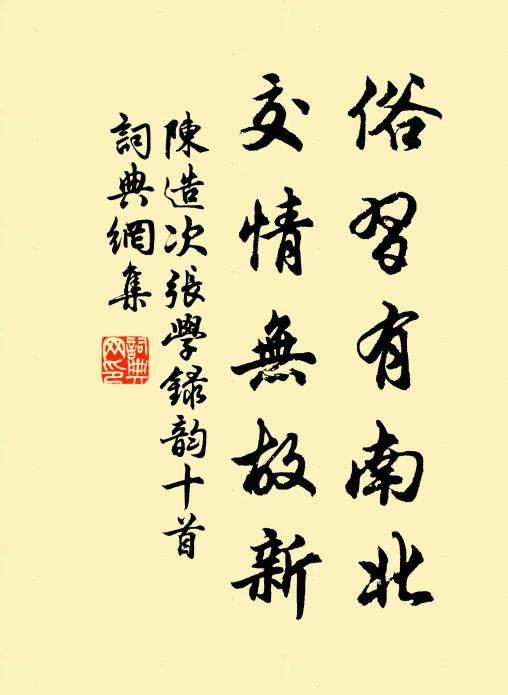 俗習有南北
交情無故新
陳造次張學録韵十首
詞典網集
詞典网印